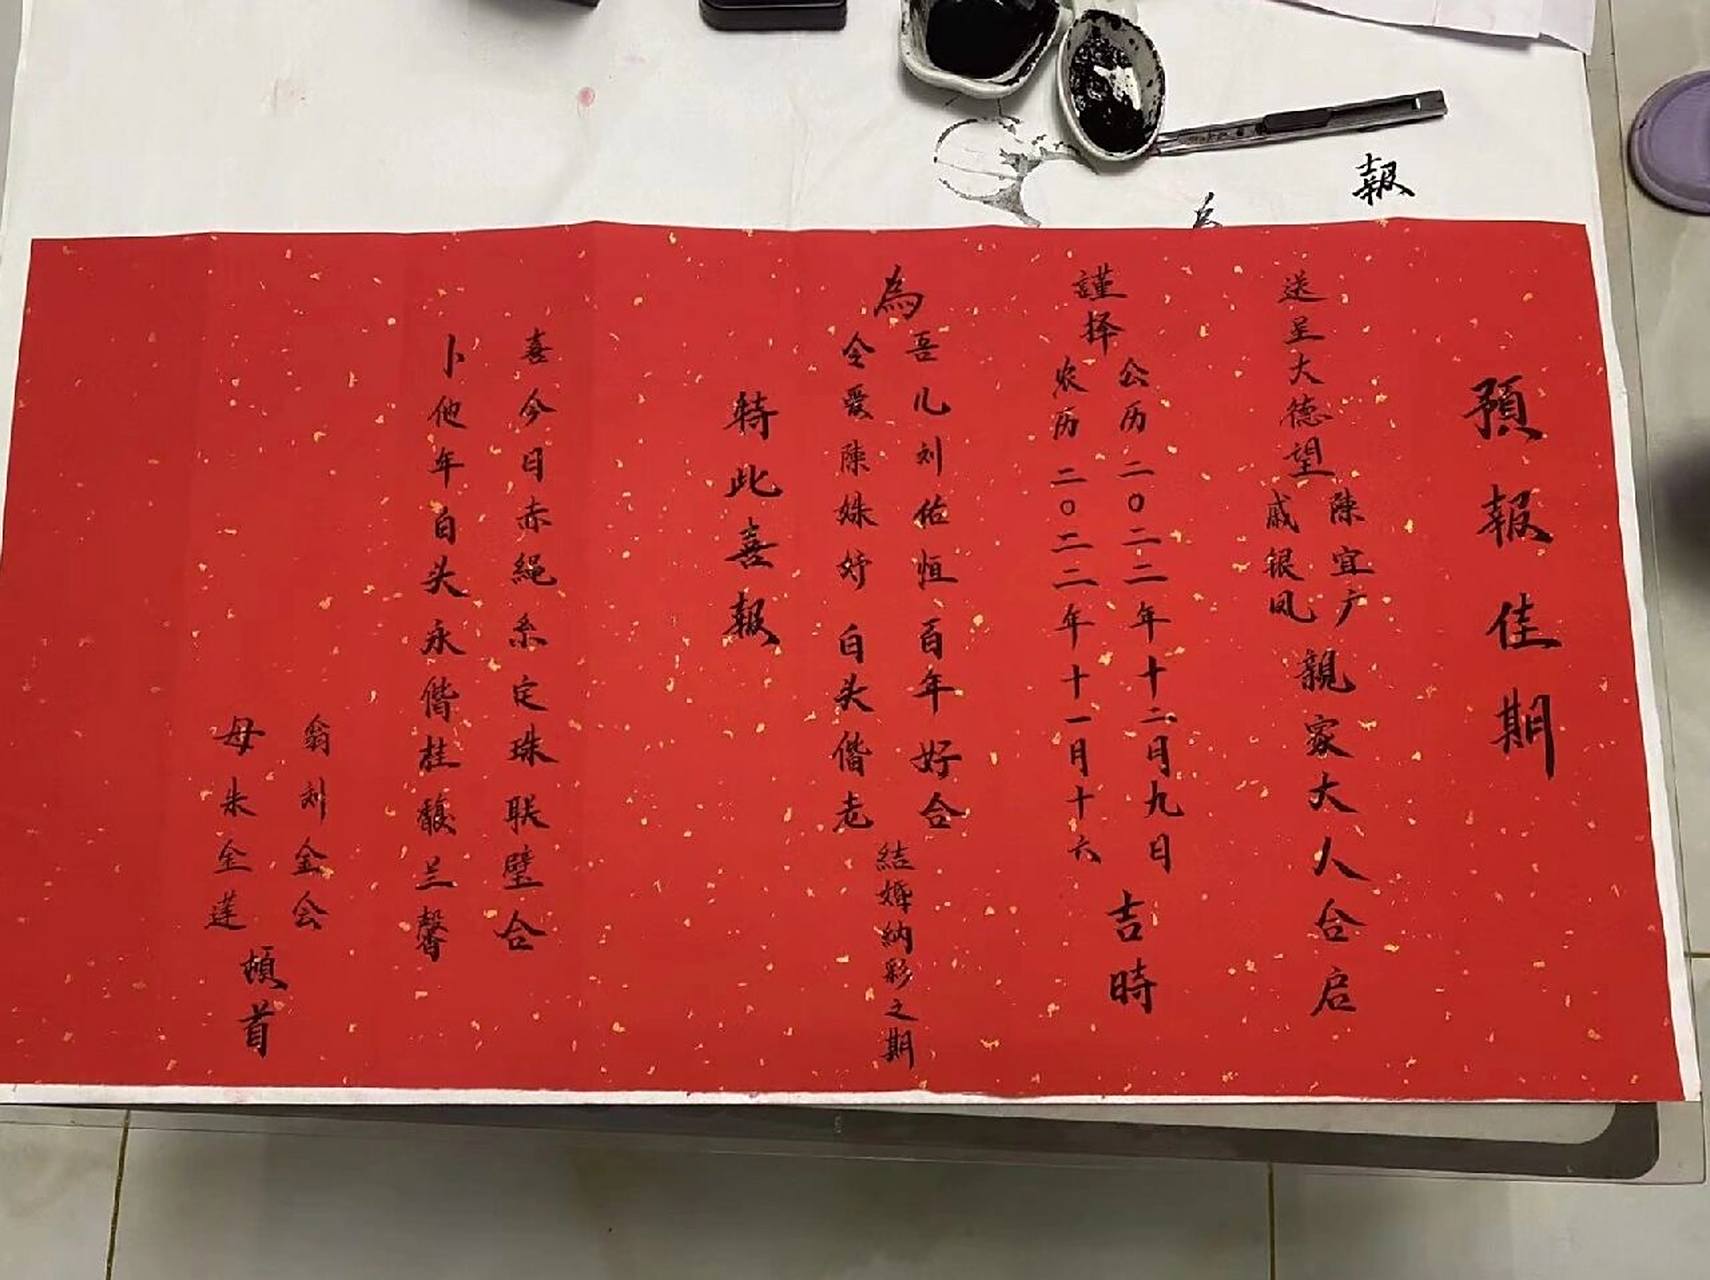 預報佳期
送呈大德望
陳宜广
戚银凤
親家大人台启
謹择
公历二〇二二年十二月九日
农历二〇二二年十一月十六
吉時
為
吾儿刘佑恒百年好合
令爱陳姝妤白头偕老
結婚納彩之期
特此喜報
喜今日赤绳系定珠联璧合
卜他年白头永偕桂馥兰馨
翁刘金会
母朱金莲
頓首
報